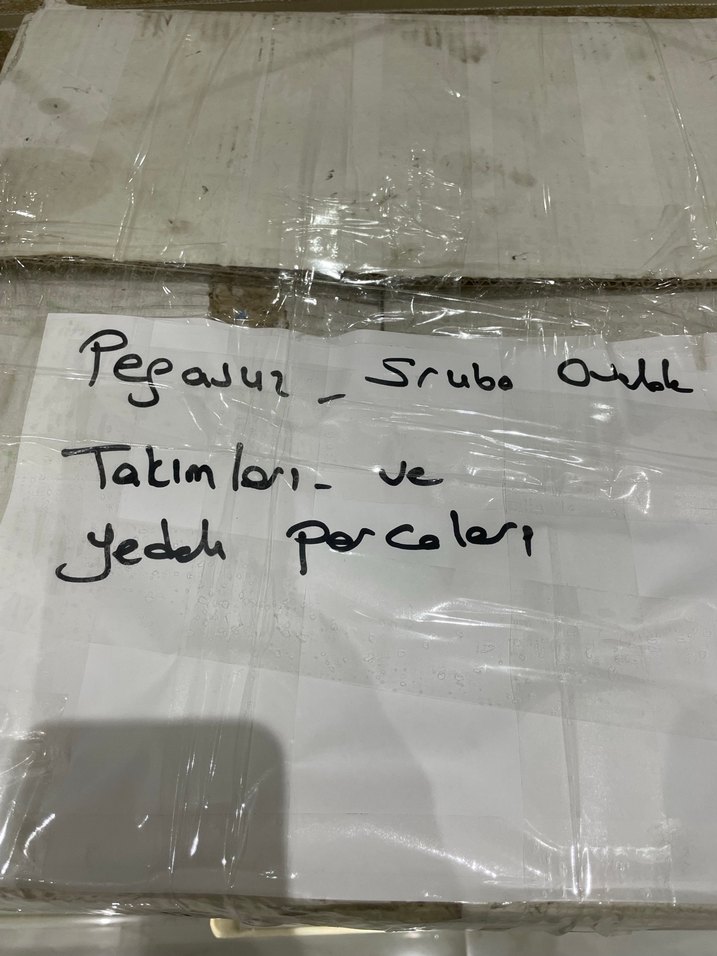 Pegasuz - Sruba Overlok
Takımları - ve
yedek parcaları